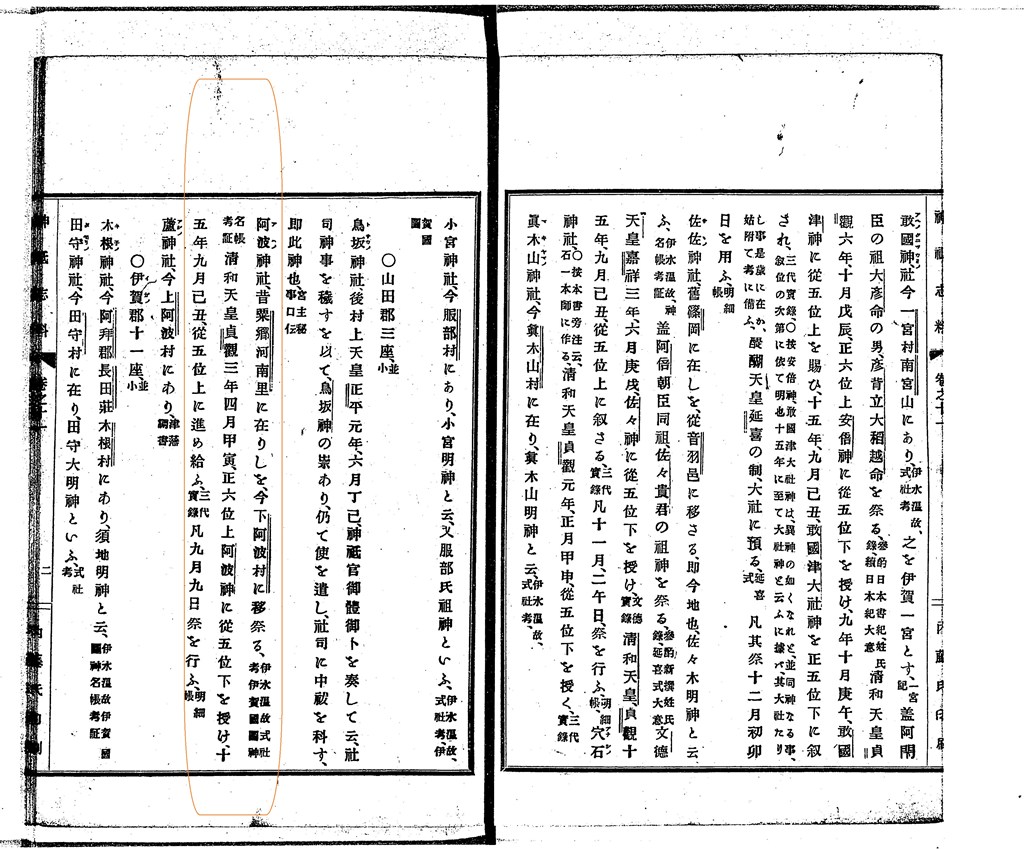 敢國神社、今一宮村南宮山にあり、伊水溫故、式社考 之を伊賀一宮とす、一宮記 盖阿閇
臣の祖大彥命の男、彥背立大稻越命を祭る、參酌日本書紀、姓氏錄、頰日本紀大意 清和天皇貞
觀六年、十月戊辰、正六位上安倍神に從五位下を授け、九年十月庚午、敢國
津神に從五位上を賜ひ、十五年、九月己丑、敢國津大社神を正五位下に叙
され、三代實錄○按安倍神、敢國津大社神は、異神の如くなれと、並同神なる事、叙位の次第に依て明也、十五年に至て大社神と云ふに據べ、其大社たり
し事是歲に在か、姑附て考に備ふ、醍醐天皇延喜の制、大社に預る、延喜式 凡其祭十二月初卯
日を用ふ、明細帳
佐佐神社、舊篠岡に在しを、從音羽邑に移さる、即今地也、佐々木明神と云
ふ、伊水溫故、神名帳考証 盖阿倍朝臣同祖、佐々貴君の祖神を祭る、參酌新撰姓氏錄、延喜式大意 文德
天皇嘉祥三年、六月庚戌、佐々神に從五位下を授け、文德實錄 清和天皇、貞觀十
五年、九月己丑、從五位上に叙さる、三代實錄 凡十一月、二午日、祭を行ふ、明細帳、 穴石
神社、○按本書旁注云、石一本師に作る、清和天皇貞觀元年、正月甲申、從五位下を授く、三代實錄
眞木山神社、今眞木山村に在り、眞木山明神と云、伊水溫故、式社考、
小宮神社、今服部村にあり、小宮明神と云、又服部氏祖神といふ、伊水溫故、式社考、伊賀國圖
○山田郡三座、並小
鳥坂神社、後村上天皇正平元年、六月丁已、神祗官御體御卜を奏して云、社
司神事を穢すを以て、鳥坂神の祟あり、仍て使を遣し、社司に中祓を科す、
即此神也、宮主秘事口伝
阿波神社、昔粟鄉河南里に在りしを、今下阿波村に移祭る、伊水溫故式社考伊賀國圖神
名帳考証 清和天皇貞觀三年四月甲寅、正六位上阿波神に從五位下を授け十
五年九月己丑、從五位上に進め給ふ、三代實錄 凡九月九日祭を行ふ、明細帳
蘆神社、今上阿波村にあり、津藩調書
○伊賀郡十一座、並小
木根神社、今阿拜郡長田莊木根村にあり、須地明神と云、伊水溫故伊賀國圖神名帳考証
田守神社、今田守村に在り、田守大明神といふ、式社考
神祇志料
卷之十一
二